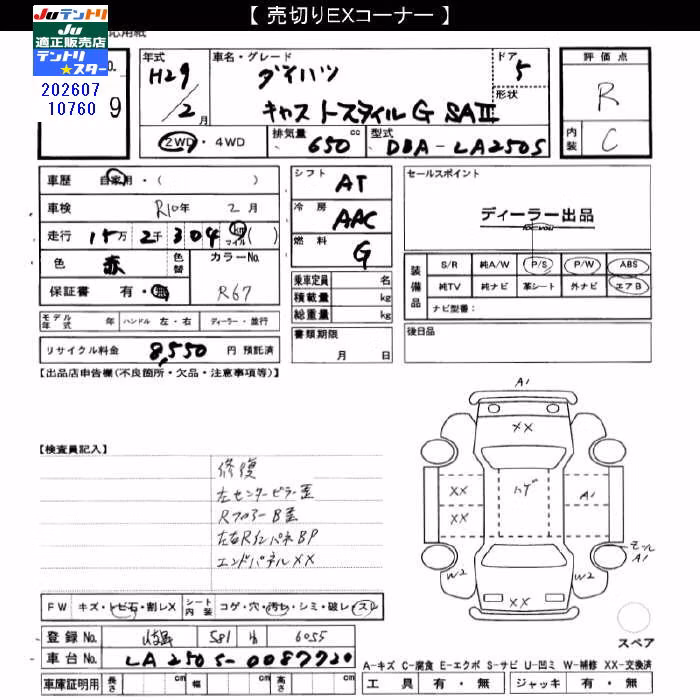 【 売切りEXコーナー 】
JUテントリ
JU
適正販売店
テントリ
★スター
202607
10760
9
年式
H29/2月
車名・グレード
ダイハツ
キャスト スタイル G SAⅡ
ドア
5
形状
評価点
R
内装
C
2WD・4WD
排気量
650 cc
型式
DBA-LA250S
車歴 自家用・( )
車検 R10年 2月
走行 15万 2千 304 km マイル ( )
色 赤
色替
カラーNo.
R67
保証書 有・無
シフト AT
冷房 AAC
燃料 G
乗車定員 名
積載量 kg
総重量 kg
セールスポイント
ディーラー出品
装備品
S/R 純A/W P/S P/W ABS
純TV 純ナビ 革シート 外ナビ エアB
ナビ型番:
モデル年式 年 ハンドル 左・右 ディーラー・並行
リサイクル料金 8,550 円 預託済
書類期限
月 日
後日品
【出品店申告欄(不良箇所・欠品・注意事項等)】
【検査員記入】
修復
左センターピラー歪
Rフロアー B歪
左右Rインパネ BP
エンドパネル XX
A1
XX
XX
XX
ハゲ
A1
モール
A1
W2
W2
XX
スペア
FW キズ・トビ石・割レX
シート内装 コゲ・穴・汚レ・シミ・破レ・スレ
登録No. 581 6055
車台No. LA250S-0087720
車庫証明用 長さ cm 幅 cm 高さ cm
A-キズ C-腐食 E-エクボ S-サビ U-凹ミ W-補修 XX-交換済
工具 有・無 ジャッキ 有・無